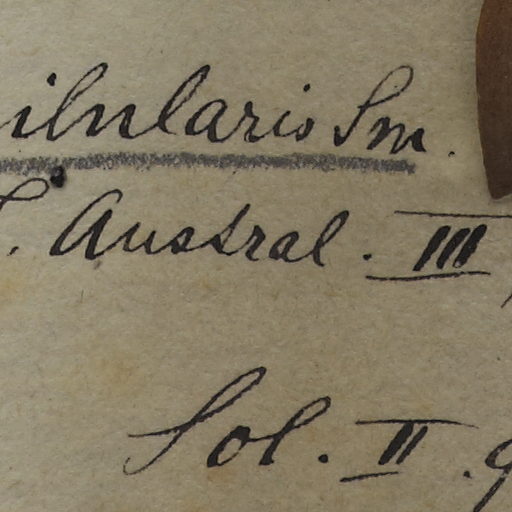 ibularis Sm.
. Austral. III
Sol. II.